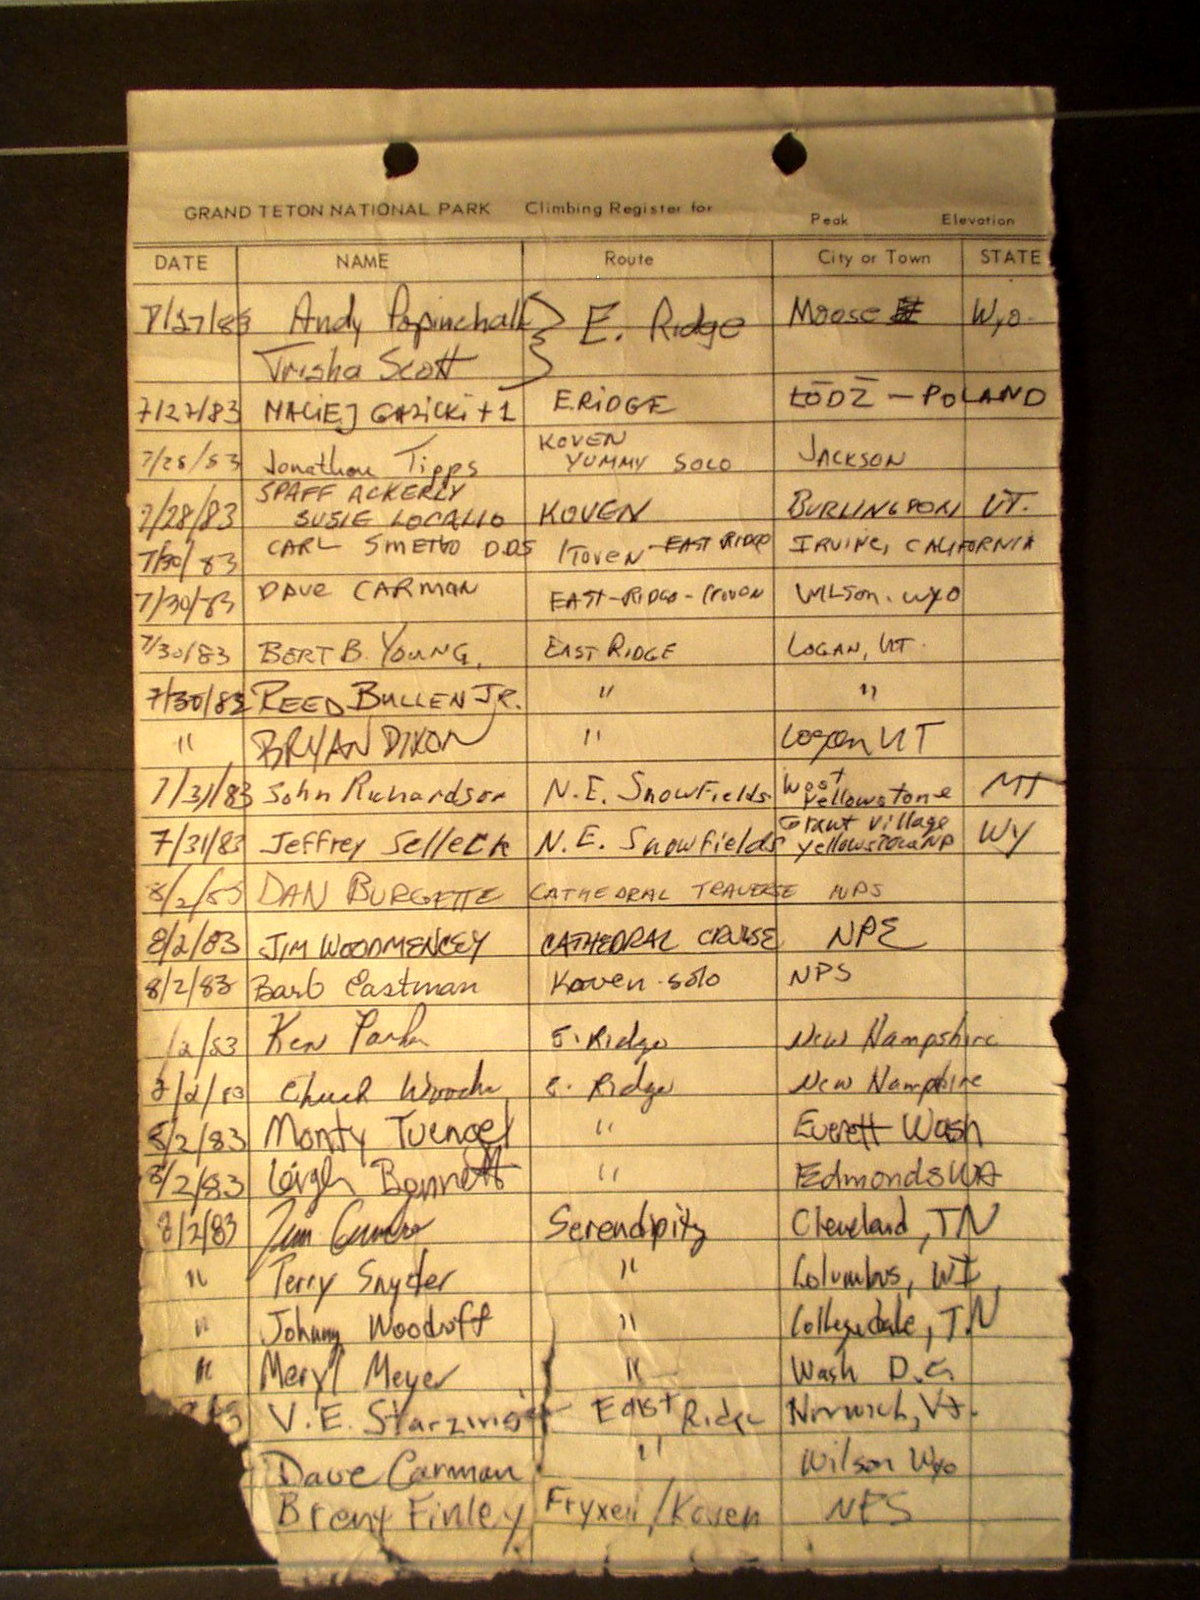 GRAND TETON NATIONAL PARK Climbing Register for Peak Elevation
DATE NAME Route City or Town STATE
7/27/83 Andy E. Ridge Moose Wyo.
Trisha Scott
7/27/83 MACIEJ GAZICKI +1 E.RIDGE ŁÓDŹ — POLAND
7/28/83 Jonathan Tipps KOVEN YUMMY SOLO JACKSON
7/28/83 SPAFF ACKERLY SUSIE LOCALIO KOVEN BURLINGTON VT.
7/30/83 CARL DDS KOVEN EAST RIDGE IRVINE, CALIFORNIA
7/30/83 DAVE CARMAN EAST-RIDGE-KOVEN WILSON. WYO
7/30/83 BERT B. YOUNG, EAST RIDGE LOGAN, UT.
7/30/83 REED BULLEN JR. " "
" BRYAN DIXON " Logan UT
7/31/83 John Richardson N.E. Snowfields West Yellowstone MT
7/31/83 Jeffrey Selleck N.E. Snowfields Grant Village Yellowstone NP WY
8/2/83 DAN BURGETTE CATHEDRAL TRAVERSE NPS
8/2/83 JIM WOODMENCEY CATHEDRAL CRUISE NPE
8/2/83 Barb Eastman Koven - solo NPS
/2/83 Ken E. Ridge New Hampshire
8/2/83 Chuck E. Ridge New Hampshire
8/2/83 Monty " Everett Wash
8/2/83 Leigh Bennett " Edmonds WA
8/2/83 Jim Serendipity Cleveland, TN
" Terry Snyder " Columbus, WI
" Johnny Woodruff " Collegedale, TN
" Meryl Meyer " Wash D.C.
V.E. East Ridge Norwich, Vt.
Dave Carman " Wilson Wyo
Brent Finley Fryxell/Koven NPS